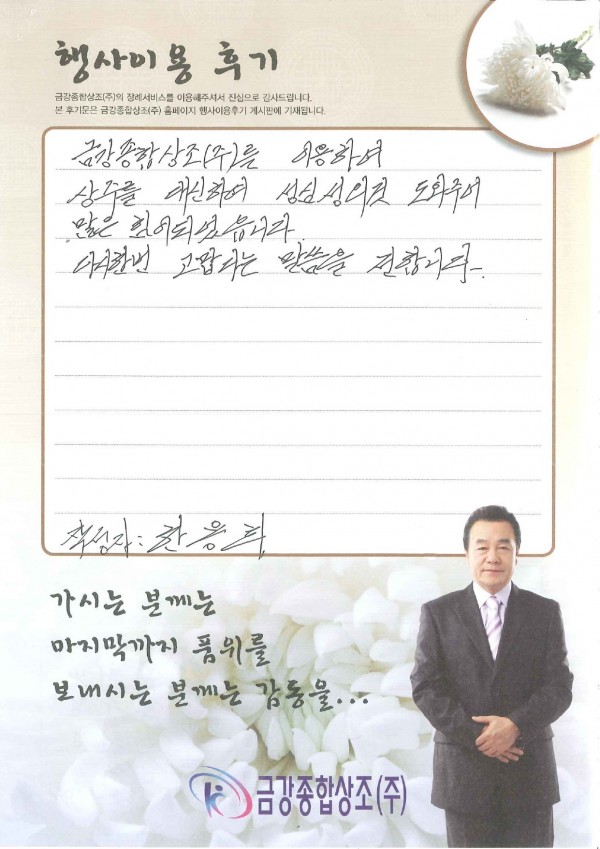 행사이용 후기
금강종합상조(주)의 장례서비스를 이용해주셔서 진심으로 감사드립니다.
본 후기문은 금강종합상조(주) 홈페이지 행사이용후기 게시판에 기재됩니다.
금강종합상조(주)를 이용하여
상주를 대신하여 성심성의껏 도와주어
많은 힘이되었읍니다.
다시한번 고맙다는 말씀을 전합니다.
작성자:
가시는 분께는
마지막까지 품위를
보내시는 분께는 감동을...
금강종합상조(주)